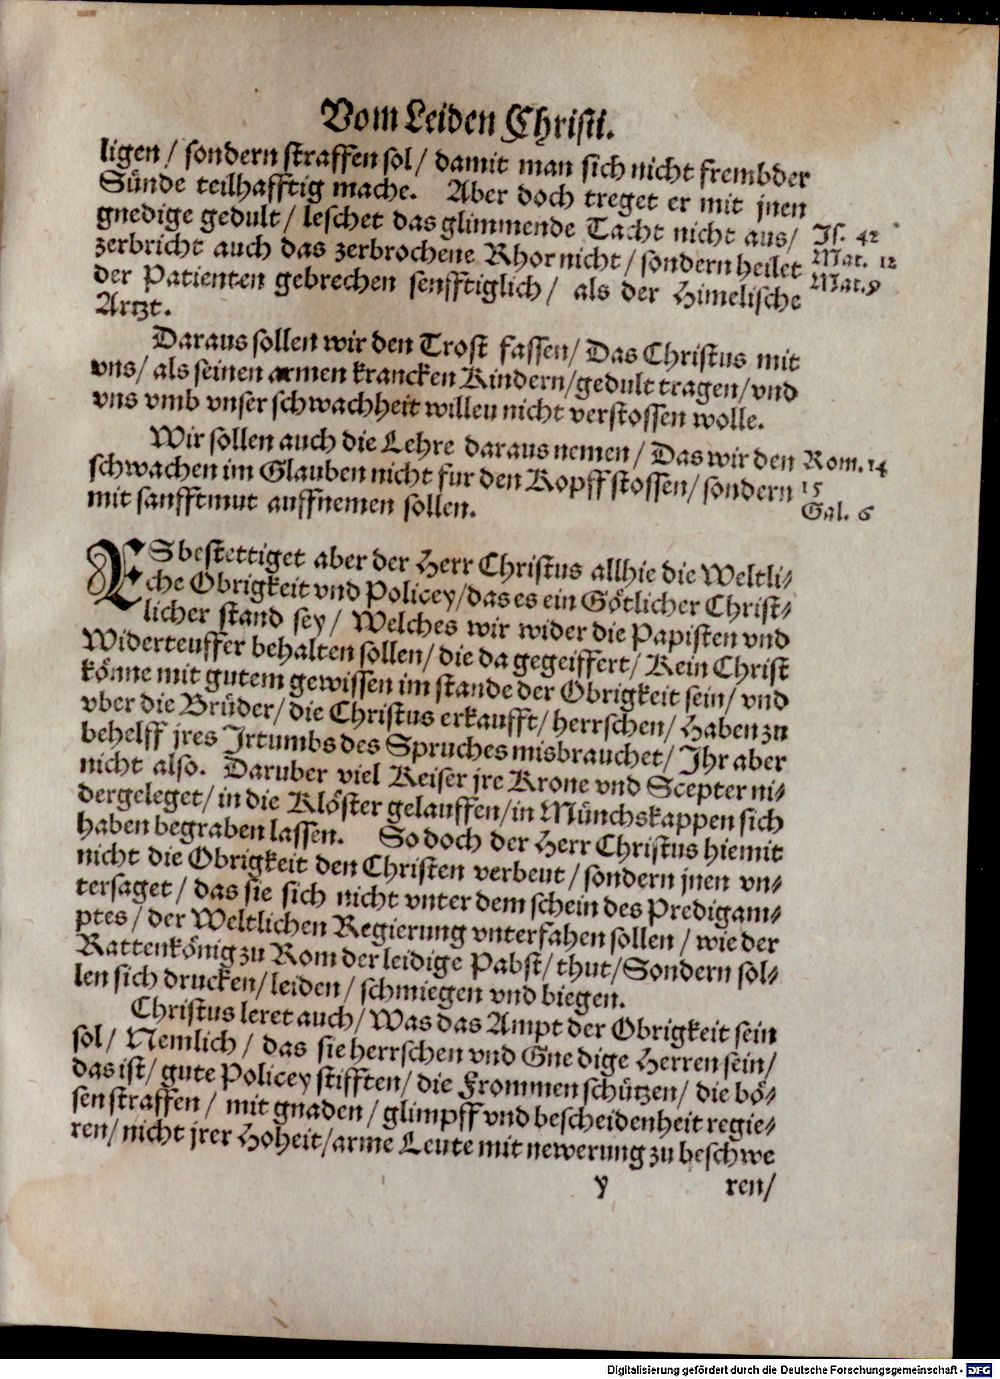 Vom Leiden Christi.
ligen / sondern straffen sol / damit man sich nicht frembder
Sünde teilhafftig mache. Aber doch treget er mit jnen
gnedige gedult / leschet das glimmende Tacht nicht aus /
Js. 42
zerbricht auch das zerbrochene Rhor nicht / sondern heilet
Mat. 12
der Patienten gebrechen senfftiglich / als der Himelische
Mat. 9
Artzt.
Daraus sollen wir den Trost fassen / Das Christus mit
vns / als seinen armen krancken Kindern / gedult tragen / vnd
vns vmb vnser schwachheit willeu nicht verstossen wolle.
Wir sollen auch die Lehre daraus nemen / Das wir den
Rom. 14
schwachen im Glauben nicht fur den Kopff stossen / sondern
15
mit sanfftmut auffnemen sollen.
Gal. 6
ES bestettiget aber der Herr Christus allhie die Weltli-
che Obrigkeit vnd Policey / das es ein Götlicher Christ-
licher stand sey / Welches wir wider die Papisten vnd
Widerteuffer behalten sollen / die da gegeiffert / Kein Christ
könne mit gutem gewissen im stande der Obrigkeit sein / vnd
vber die Brüder / die Christus erkaufft / herrschen / Haben zu
behelff jres Jrtumbs des Spruches misbrauchet / Jhr aber
nicht also. Daruber viel Keiser jre Krone vnd Scepter ni-
dergeleget / in die Klöster gelauffen / in Münchskappen sich
haben begraben lassen. So doch der Herr Christus hiemit
nicht die Obrigkeit den Christen verbeut / sondern jnen vn-
tersaget / das sie sich nicht vnter dem schein des Predigam-
ptes / der Weltlichen Regierung vnterfahen sollen / wie der
Rattenkönig zu Rom der leidige Pabst / thut / Sondern sol-
len sich drucken / leiden / schmiegen vnd biegen.
Christus leret auch / Was das Ampt der Obrigkeit sein
sol / Nemlich / das sie herrschen vnd Gnedige Herren sein /
das ist / gute Policey stifften / die Frommen schützen / die bö-
sen straffen / mit gnaden / glimpff vnd bescheidenheit regie-
ren / nicht jrer Hoheit / arme Leute mit newerung zu beschwe
y
ren /
Digitalisierung gefördert durch die Deutsche Forschungsgemeinschaft - DFG